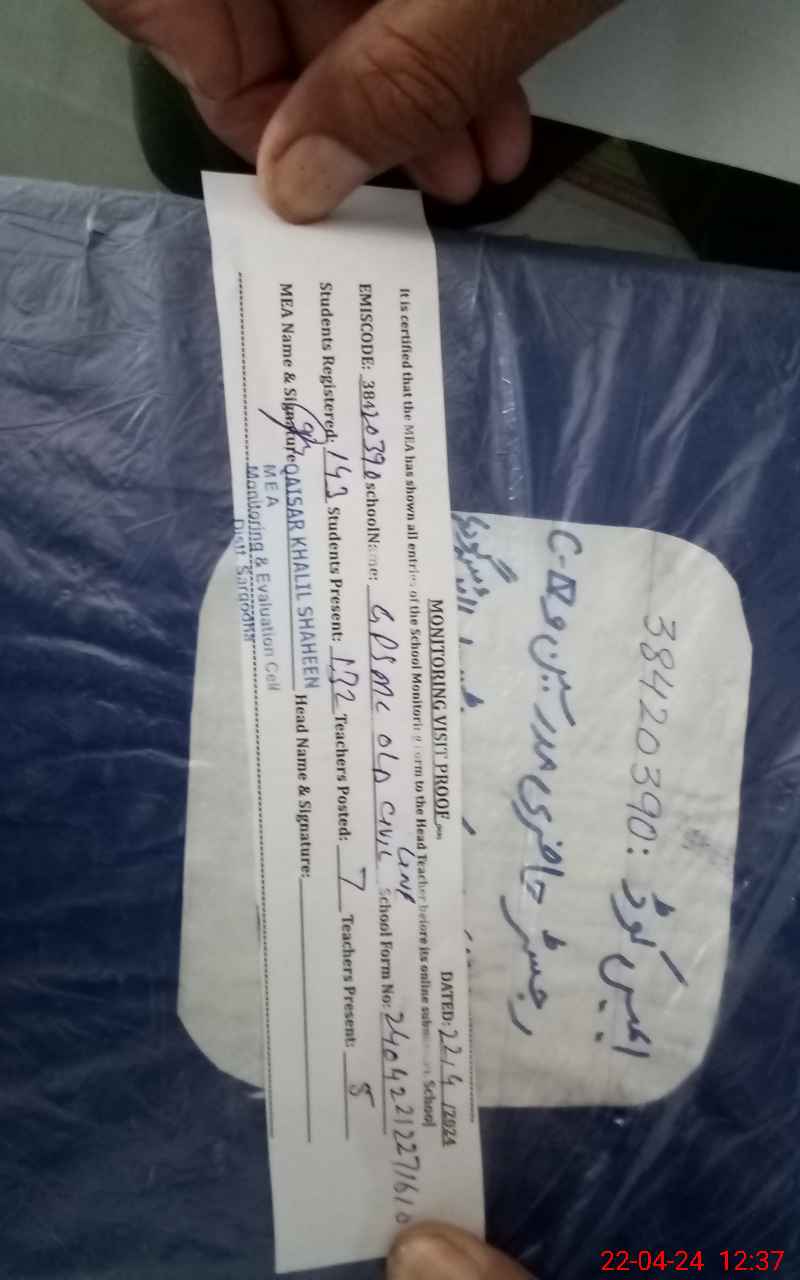 MONITORING VISIT PROOF
DATED: 22/4/2024
It is certified that the MEA has shown all entries of the School Monitoring Form to the Head Teacher before its online School
EMISCODE: 38420390 schoolName: GPSMC OLD CIVIL LINE School Form No: 24042212271610
Students Registered: 143 Students Present: 132 Teachers Posted: 7 Teachers Present: 5
MEA Name & Signature QAISAR KHALIL SHAHEEN Head Name & Signature:
MEA
Monitoring & Evaluation Cell
Distt. Sargodha
38420390: کوڈ
رجسٹر حاضری مدرسین
22-04-24 12:37